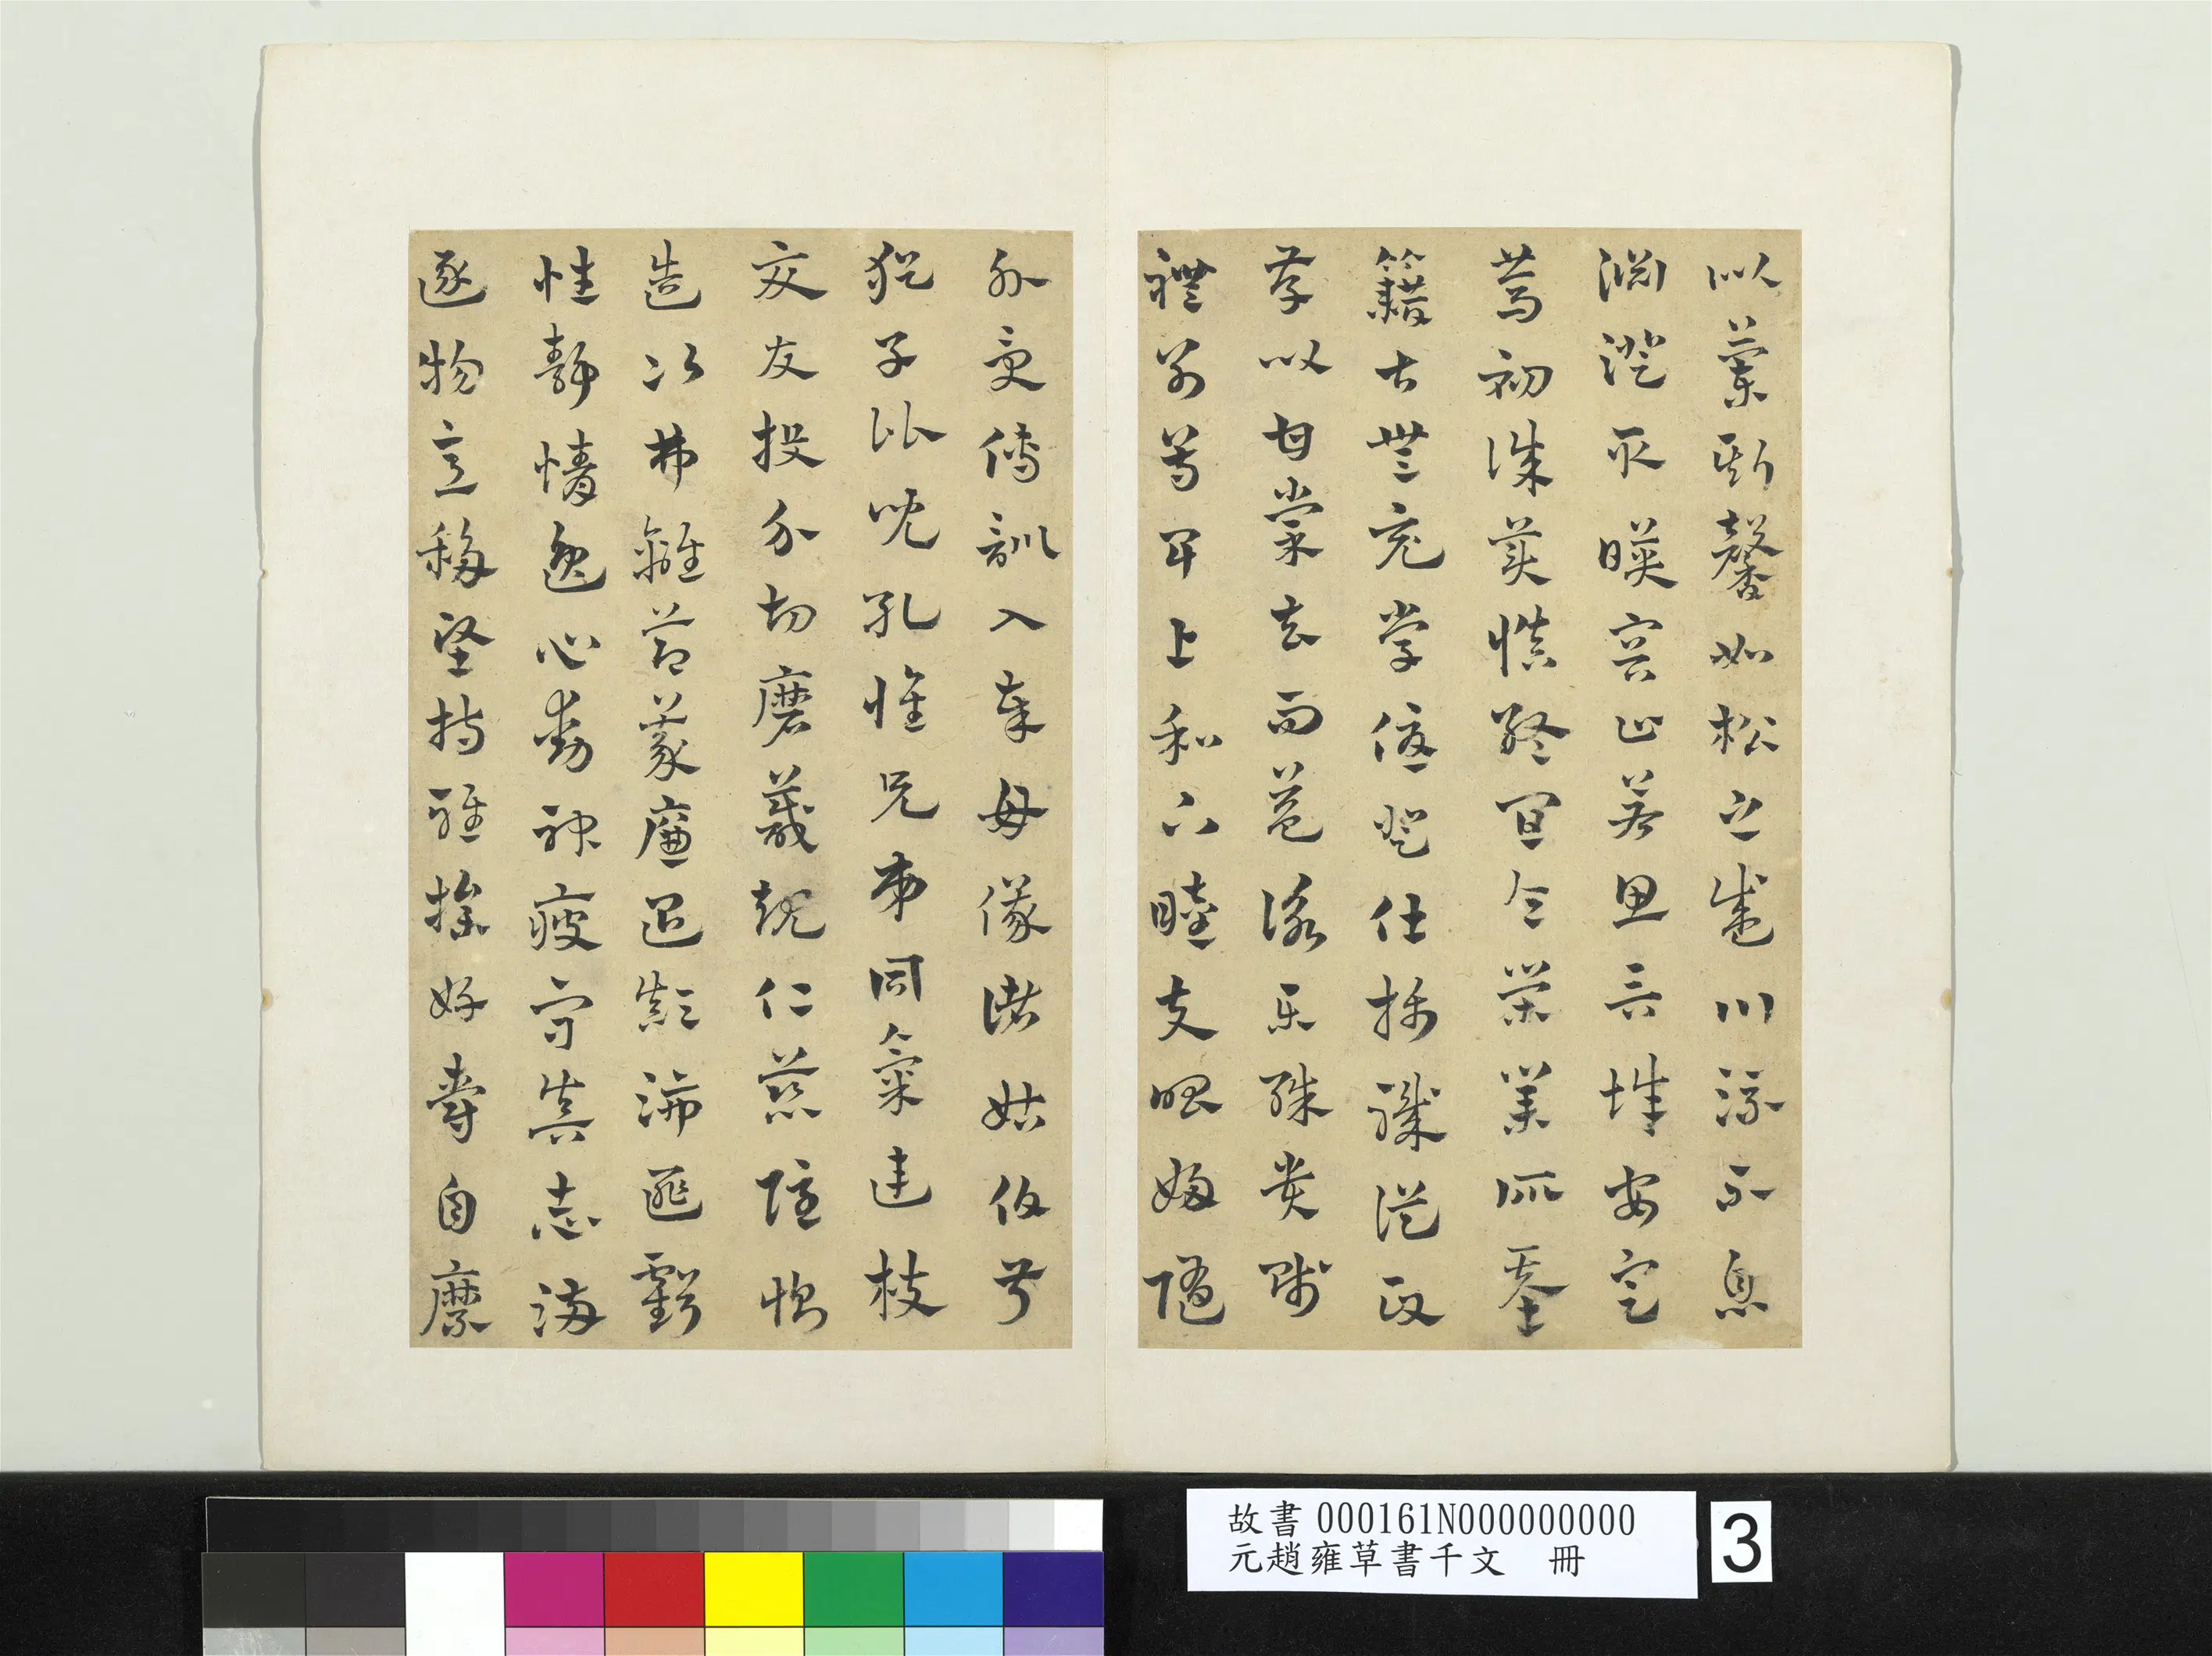 似蘭斯馨如松之盛川流不息
淵澄取暎容止若思言辭安定
篤初誠美慎終宜令榮業所基
籍甚無竟學優登仕攝職從政
存以甘棠去而益詠樂殊貴賤
禮別尊卑上和下睦夫唱婦隨
外受傅訓入奉母儀諸姑伯叔
猶子比兒孔懷兄弟同氣連枝
交友投分切磨箴規仁慈隱惻
造次弗離節義廉退顛沛匪虧
性靜情逸心動神疲守真志滿
逐物意移堅持雅操好爵自縻
故書 000161N000000000
元趙雍草書千文 冊
3